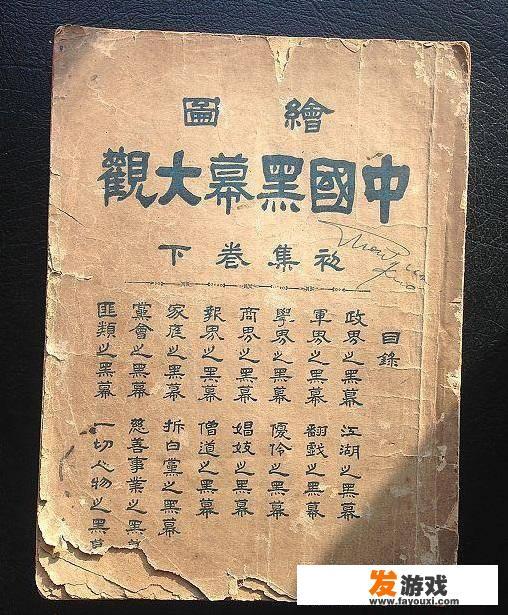 繪圖
中國黑幕大觀
初集卷下
目錄
政界之黑幕 江湖之黑幕
軍界之黑幕 翻戲之黑幕
學界之黑幕 優伶之黑幕
商界之黑幕 娼妓之黑幕
報界之黑幕 僧道之黑幕
家庭之黑幕 拆白黨之黑幕
黨會之黑幕 慈善事業之黑幕
匪類之黑幕 一切人物之黑幕
发游戏
www.fayouxi.com